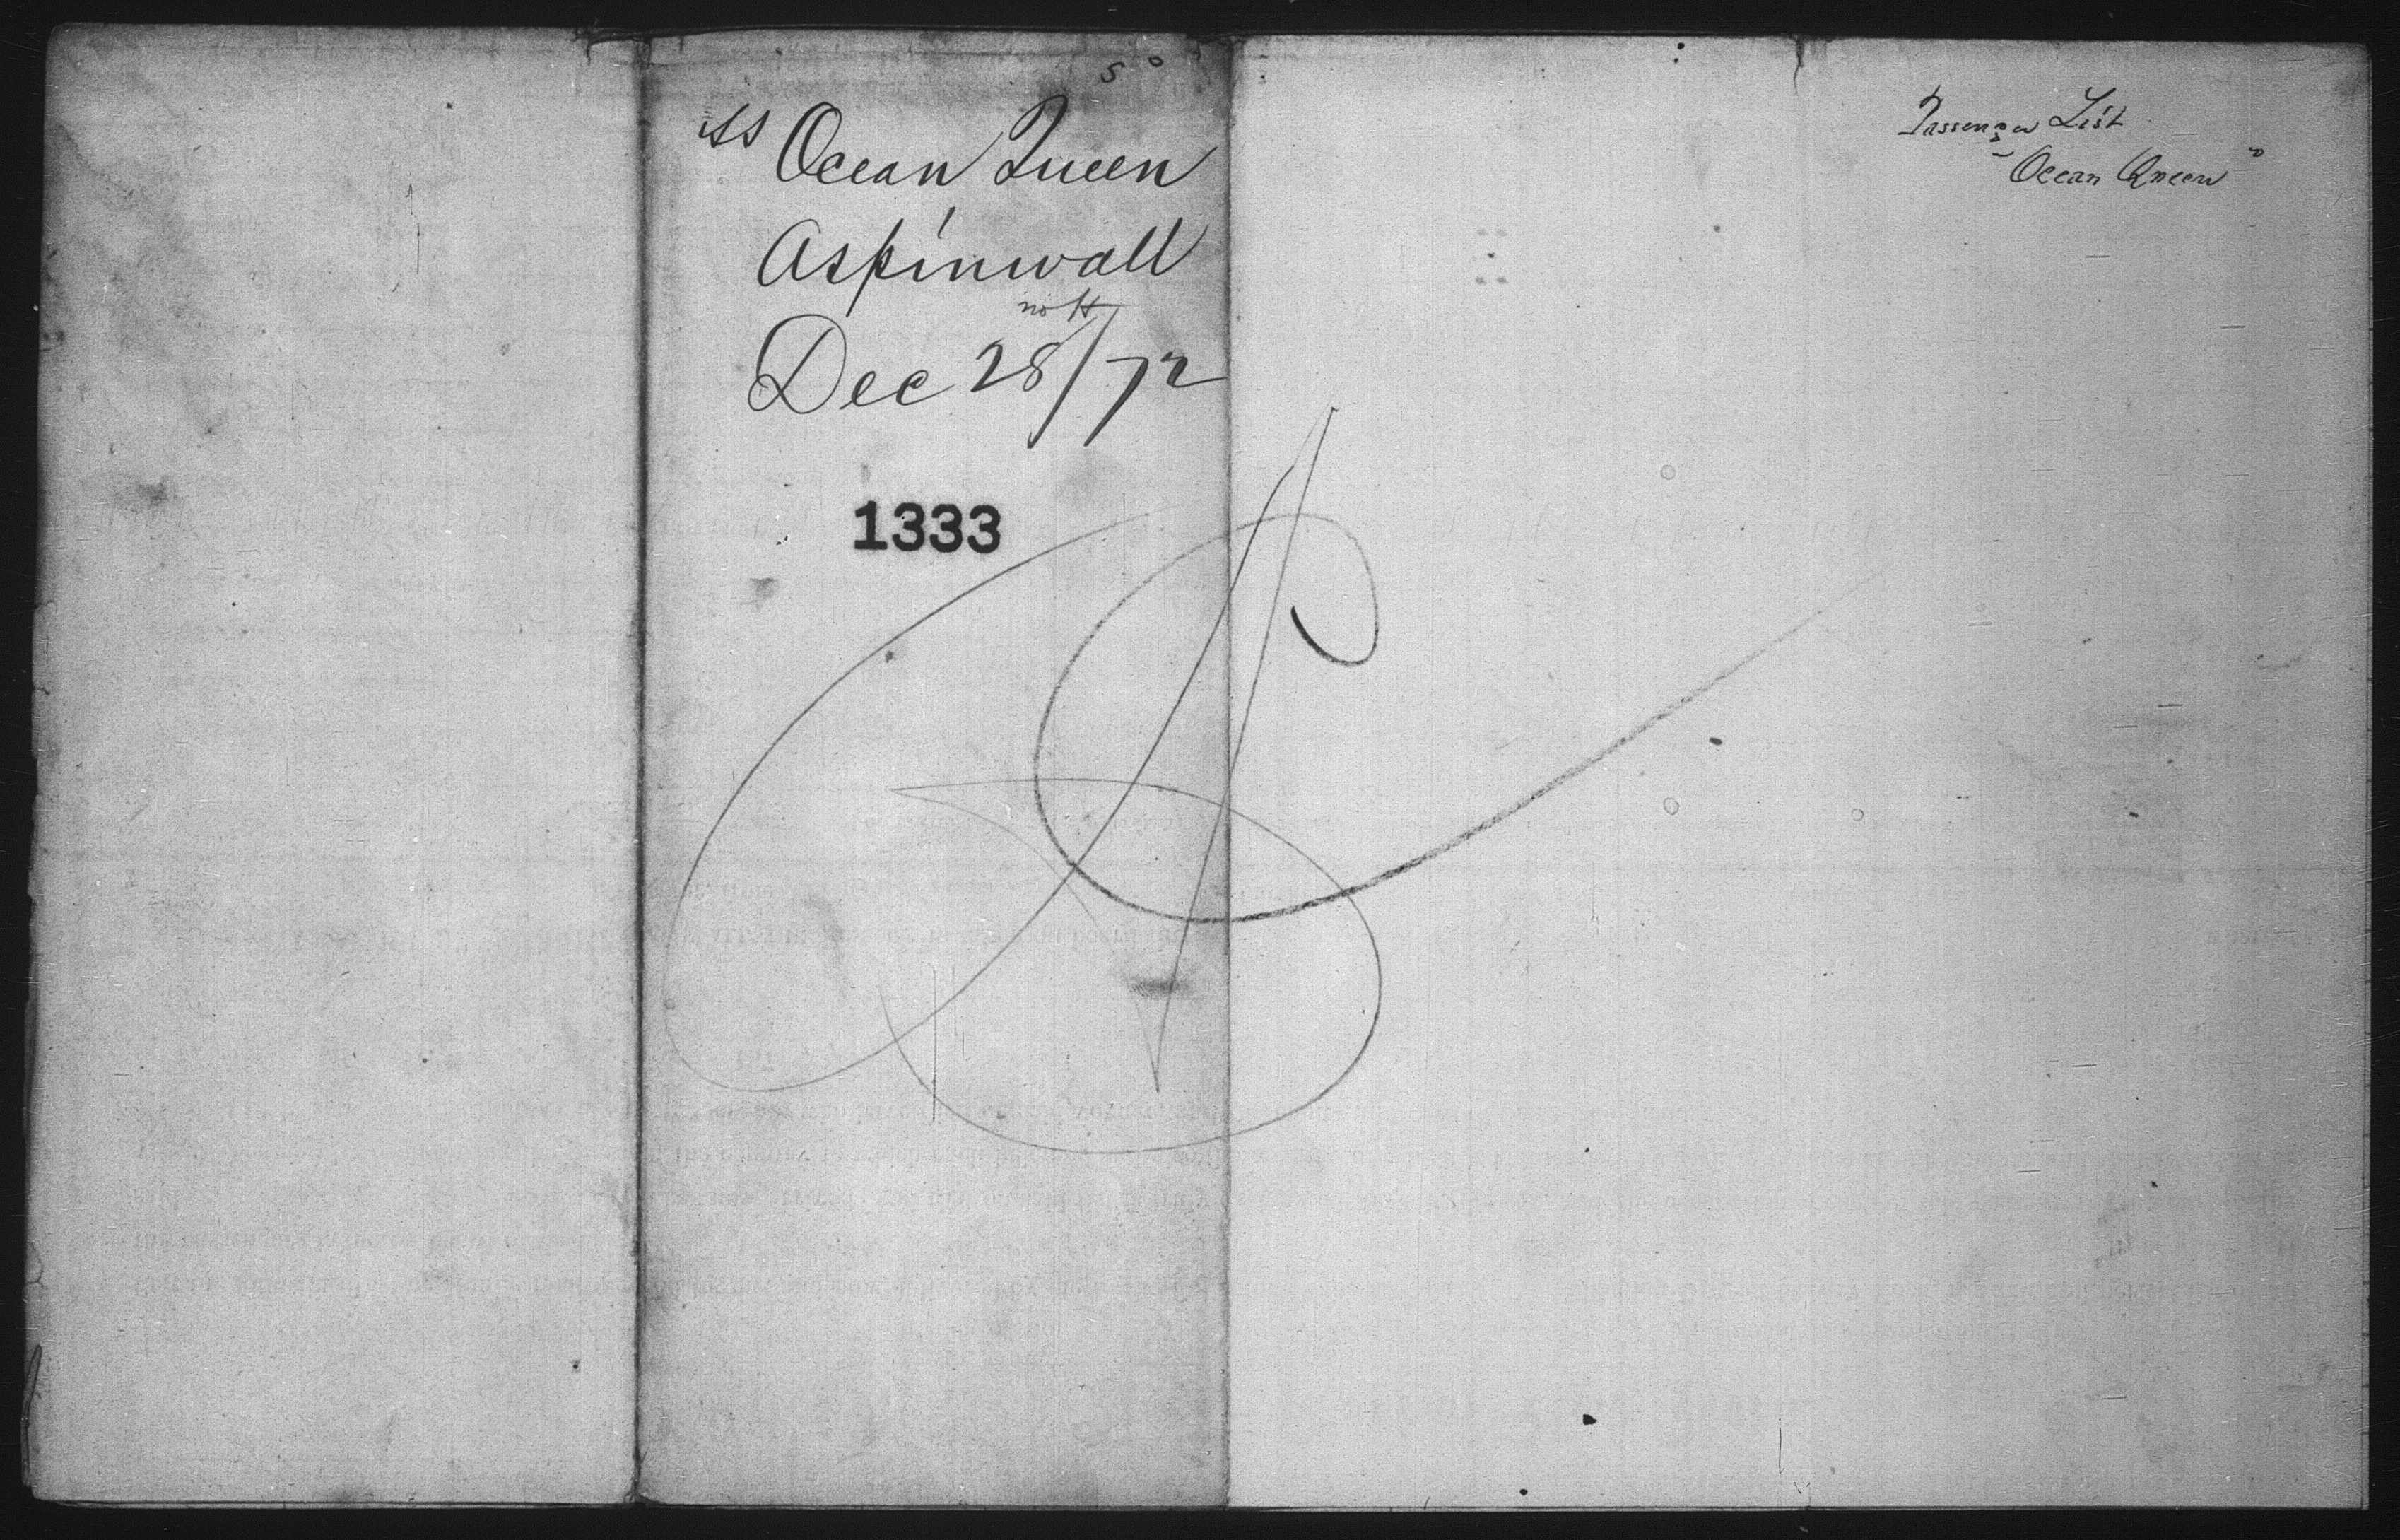 SS Ocean Queen
Aspinwall
Dec 28/72
1333
Passenger List
"Ocean Queen"